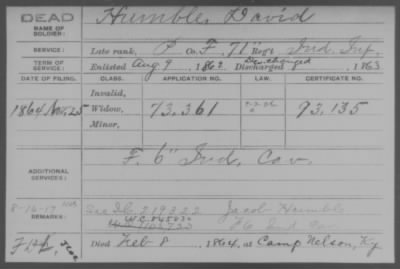 DEAD
NAME OF SOLDIER:
Humble, David
SERVICE:
Late rank, P Co. F, 71 Reg't Ind. Inf.
TERM OF SERVICE:
Enlisted Aug. 9, 1862 Discharged 1863
DATE OF FILING. CLASS. APPLICATION NO. LAW. CERTIFICATE NO.
Invalid,
1864 Nov. 25 Widow, 73.361 93.135
Minor,
F. 6" Ind. Cav.
ADDITIONAL SERVICES:
8-16-17
REMARKS:
See 219322 Jacob Humble
Died Feb 8, 1864, at Camp Nelson, Ky